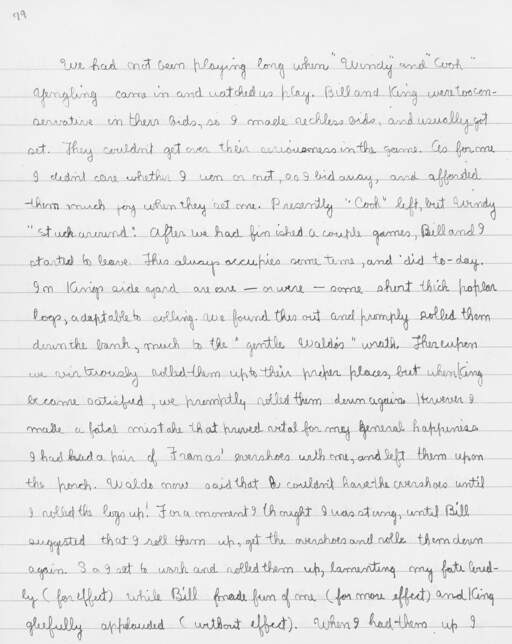 79
We had not been playing long when "Windy" and "Cook"
Yengling came in and watched us play. Bill and King were too con-
servative in their bids, so I made reckless bids, and usually got
set. They couldn't get over their seriousness in the game. As for me
I didn't care whether I won or not, so I bid away, and afforded
them much joy when they set me. Presently "Cook" left, but Windy
"stuck around". After we had finished a couple games, Bill and I
started to leave. This always occupies some time, and did to-day.
In King's side yard are are — or were — some short thick poplar
logs, adaptable to rolling. We found this out and promply rolled them
down the bank, much to the "gentle Waldo's" wrath. Thereupon
we virtuously rolled them up to their proper places, but when King
became satisfied, we promptly rolled them down again. However I
made a fatal mistake that proved vital for my general happiness
I had had a pair of Francis' overshoes with me, and left them upon
the porch. Waldo now said that I couldn't have the overshoes until
I rolled the logs up! For a moment I thought I was stung, until Bill
suggested that I roll them up, get the overshoes and rolle them down
again. So I set to work and rolled them up, lamenting my fate loud-
ly (for effect) while Bill made fun of me (for more effect) and King
gleefully applauded (without effect). When I had them up I